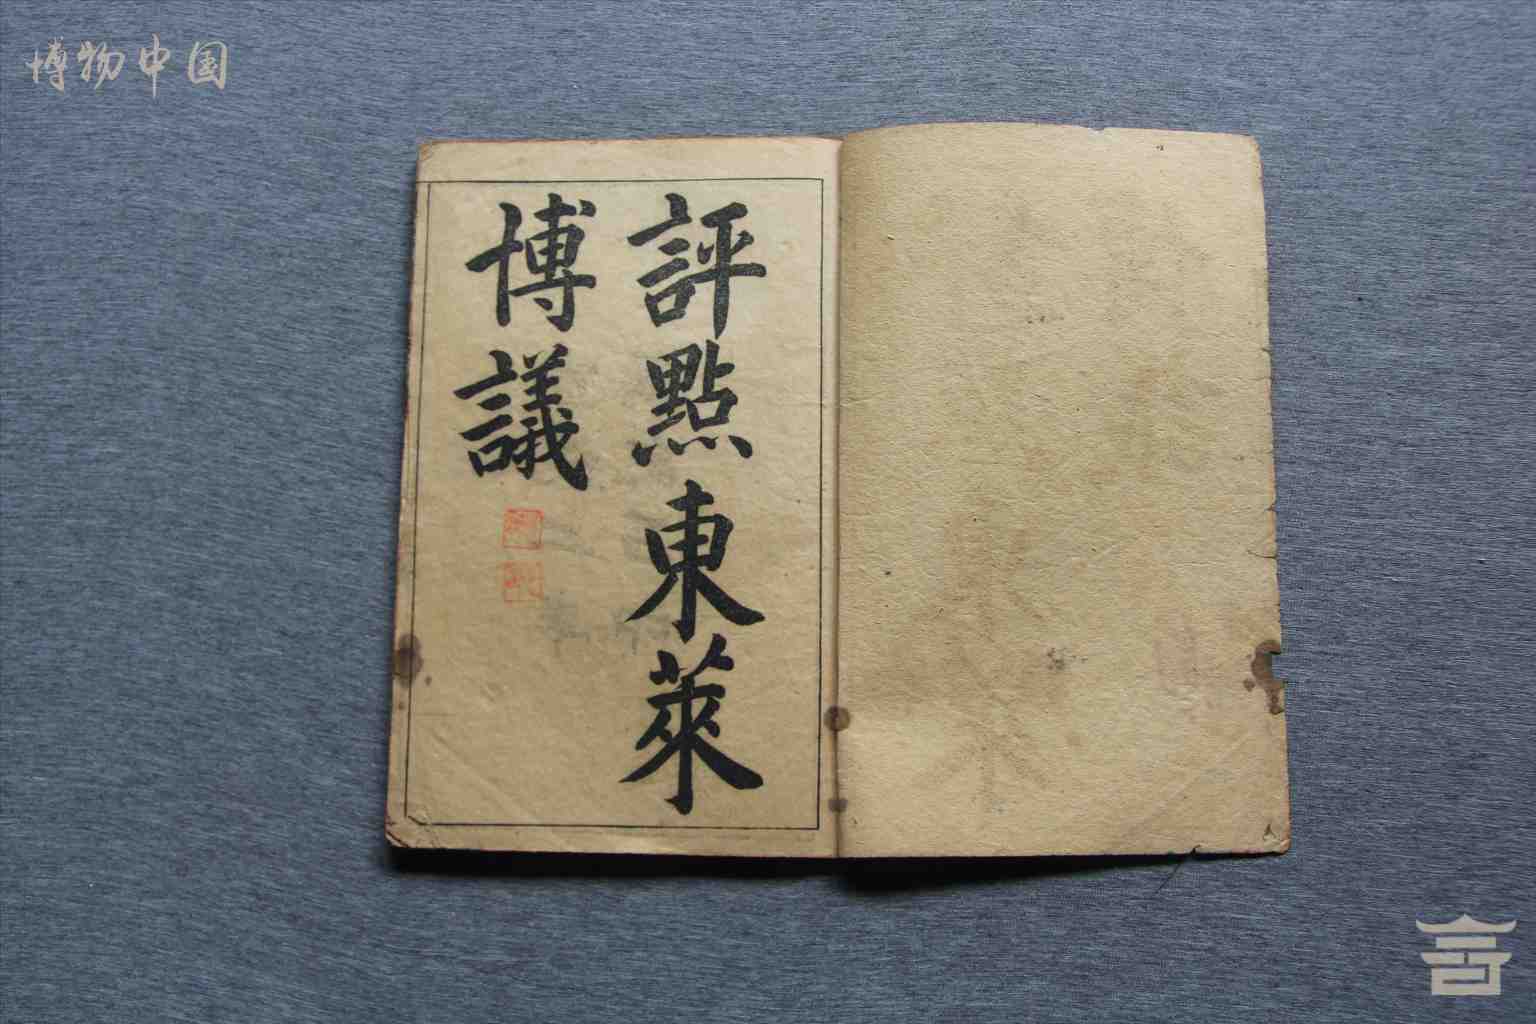 博物中国
評點東萊
博議